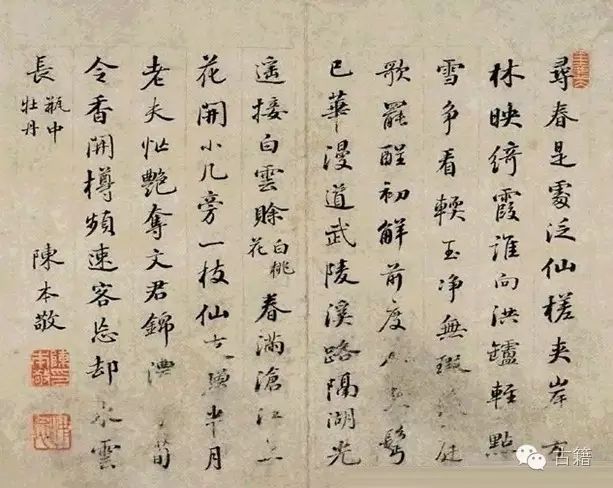 尋春是處泛仙槎夾岸方
林映綺霞誰向洪鑪輕點
雪爭看輭玉净無瑕庭
歌罷醒初解前度鬢
已華漫道武陵溪路隔湖光
遥接白雲賖白桃花春滿滄江上
花開小几旁一枝仙半月
老夫恾艶奪文君錦荀
令香開樽頻速客忘却雲
長瓶中牡丹
陳本敬
古籍